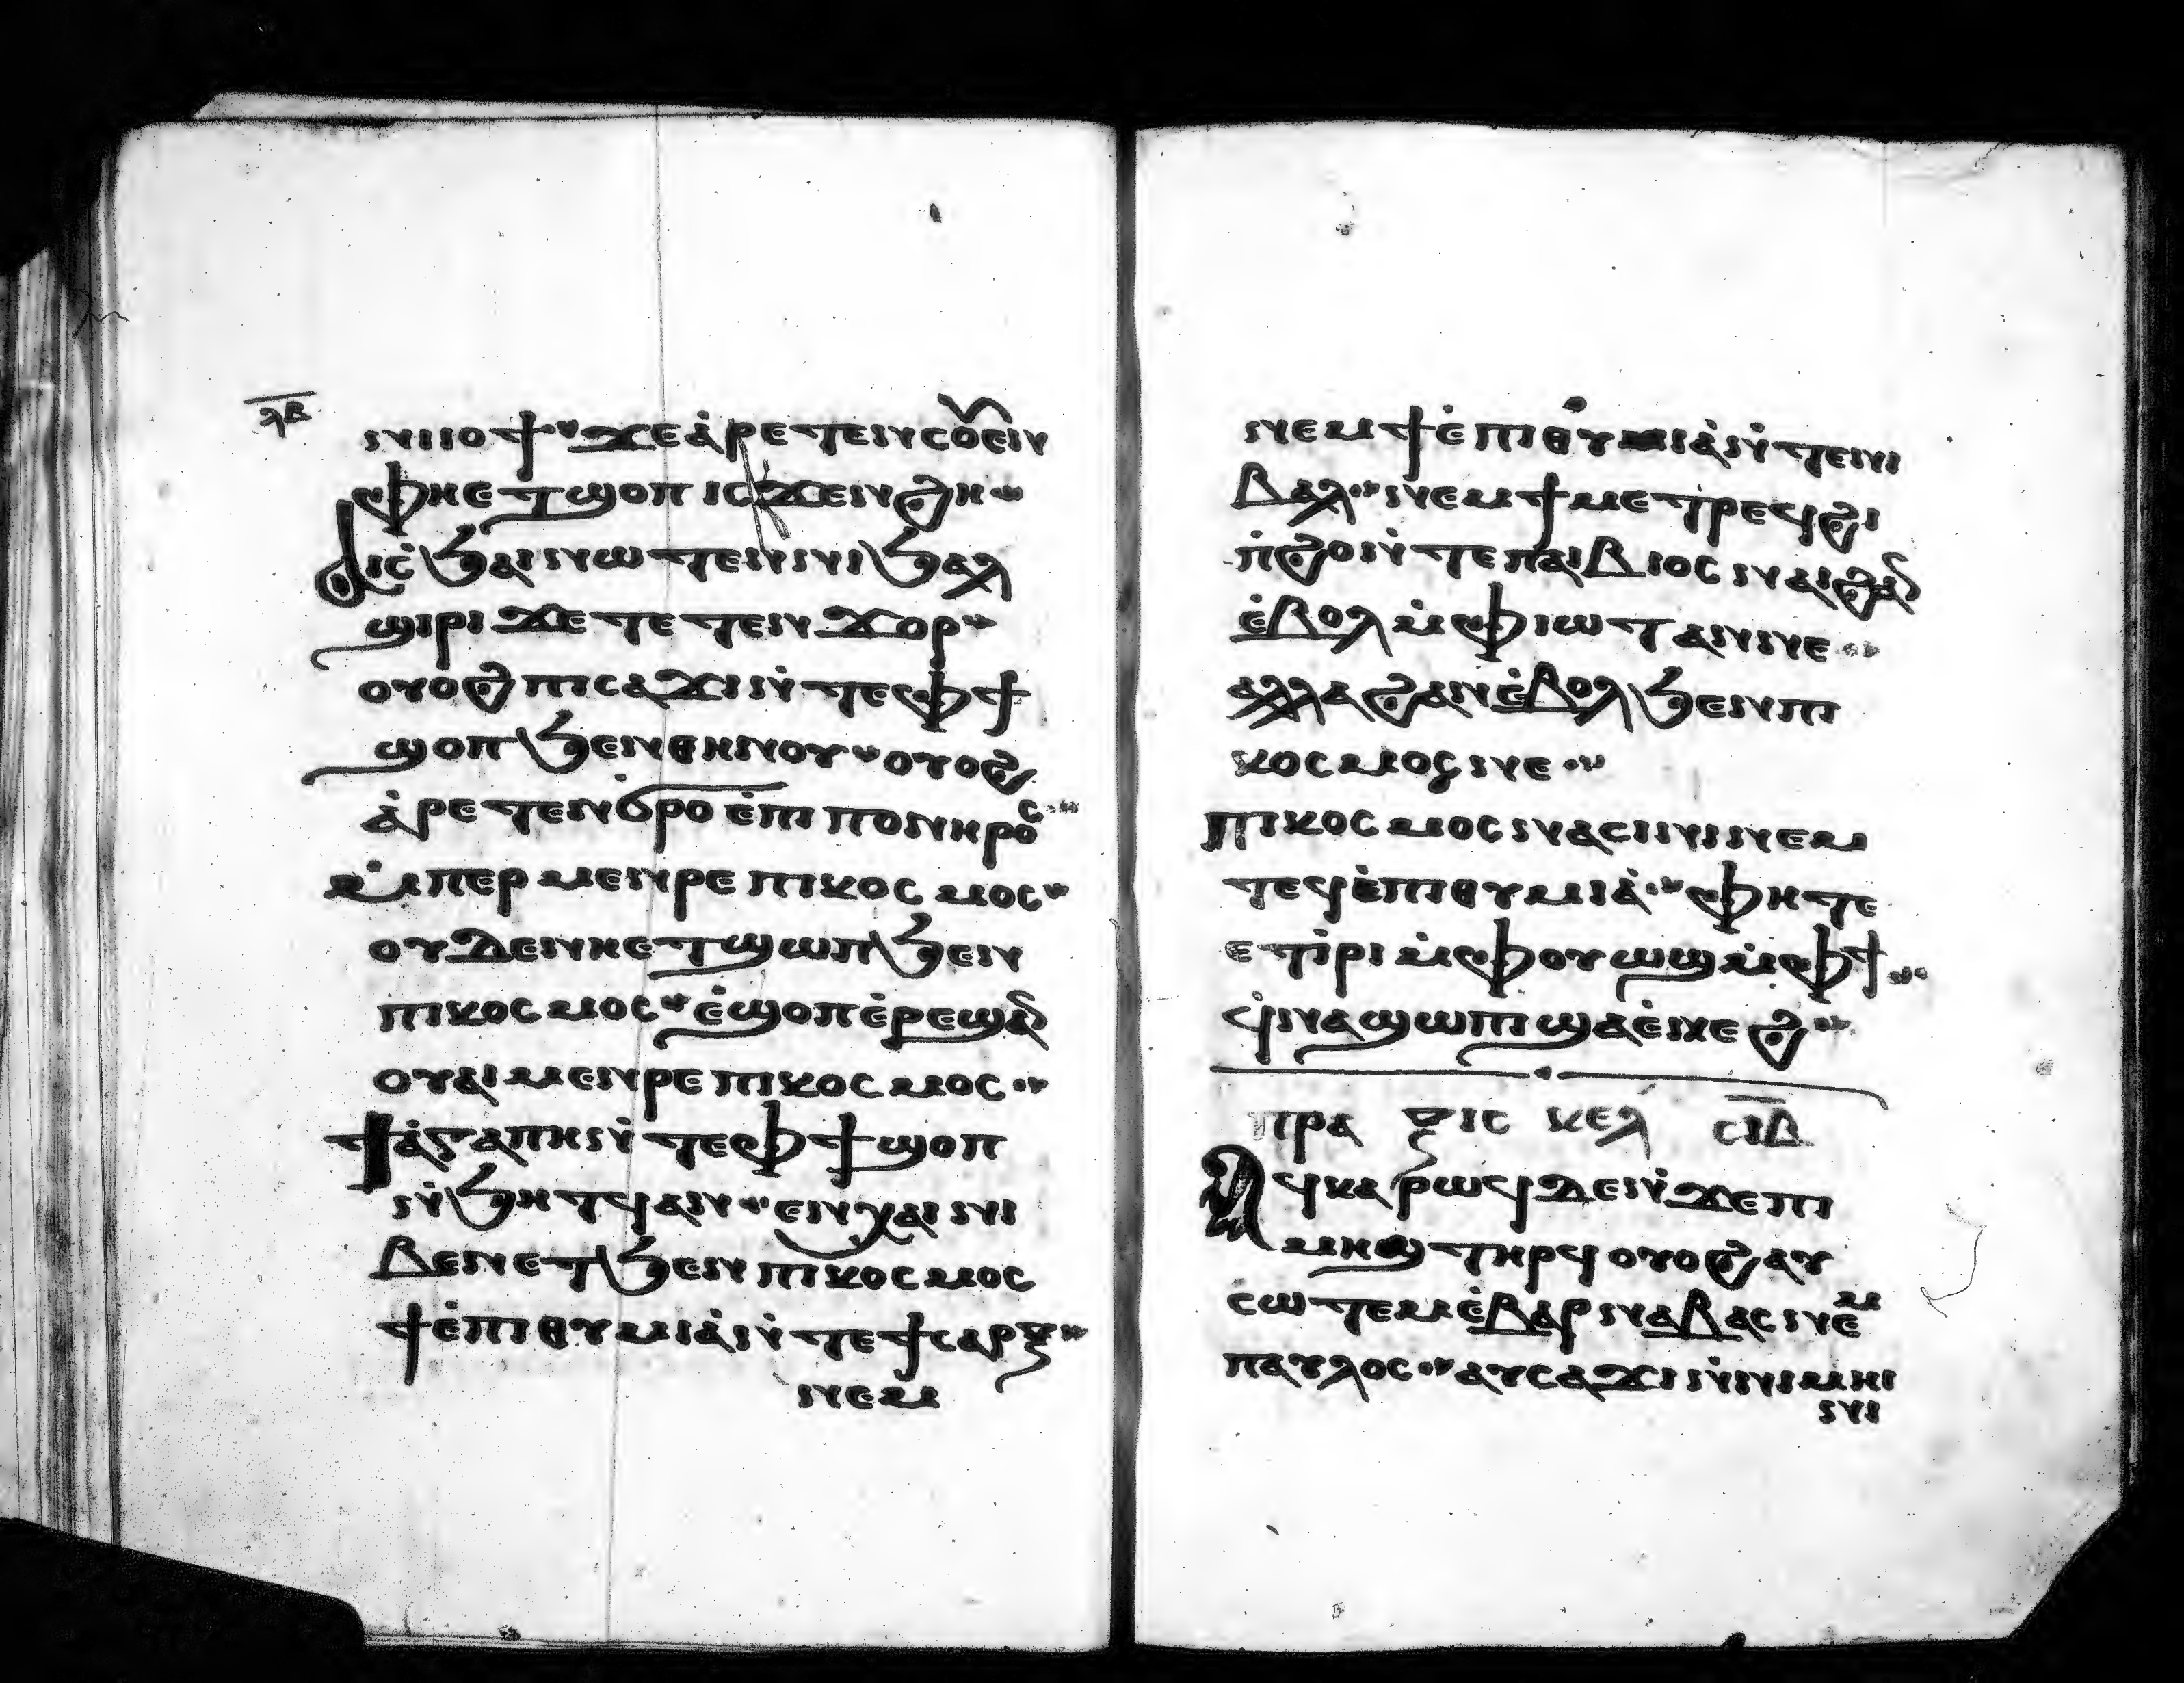 ⲗⲃ
ⲛⲓⲟϯ ϫⲉ ⲁ̀ⲣⲉⲧⲉⲛⲥⲟⲩⲉⲛ
ⲫⲏⲉⲧϣⲟⲡ ⲓⲥϫⲉⲛϩⲏ
ⲁⲓⲥϧⲁⲓ ⲛⲱⲧⲉⲛ ⲛⲓϧⲉⲗ
ϣⲓⲣⲓ ϫⲉ ⲧⲉⲧⲉⲛϫⲟⲣ
ⲟⲩⲟϩ ⲡⲓⲥⲁϫⲓ ⲛ̀ⲧⲉ ⲫϯ
ϣⲟⲡ ϧⲉⲛ ⲑⲏⲛⲟⲩ ⲟⲩⲟϩ
ⲁ̀ⲣⲉⲧⲉⲛϭⲣⲟ ⲉ̀ⲡⲓⲡⲟⲛⲏⲣⲟⲥ
ⲙ̀ⲡⲉⲣⲙⲉⲛⲣⲉ ⲡⲓⲕⲟⲥⲙⲟⲥ
ⲟⲩⲇⲉ ⲛⲏⲉⲧϣⲱⲡ ϧⲉⲛ
ⲡⲓⲕⲟⲥⲙⲟⲥ ⲉ̀ϣⲟⲡ ⲉ̀ⲣⲉϣⲁⲛ
ⲟⲩⲁⲓ ⲙⲉⲛⲣⲉ ⲡⲓⲕⲟⲥⲙⲟⲥ
ϯⲁ̀ⲅⲁⲡⲏ ⲛ̀ⲧⲉ ⲫϯ ϣⲟⲡ
ⲛ̀ϧⲏⲧϥ ⲁⲛ ⲉⲛⲭⲁⲓ ⲛⲓ
ⲃⲉⲛ ⲉⲧϧⲉⲛ ⲡⲓⲕⲟⲥⲙⲟⲥ
ϯⲉ̀ⲡⲓⲑⲩⲙⲓⲁ̀ ⲛ̀ⲧⲉ ϯⲥⲁⲣⲝ
ⲛⲉⲙ
ⲛⲉⲙ ϯⲉ̀ⲡⲓⲑⲩⲙⲓⲁ̀ ⲛ̀ⲧⲉ ⲛⲓ
ⲃⲁⲗ ⲛⲉⲙ ϯⲙⲉⲧⲣⲉϥϩⲓ
ⲡ̀ϩⲟ ⲛ̀ⲧⲉ ⲡⲁⲓⲃⲓⲟⲥ ⲛⲁⲓ ϩⲁⲛ
ⲉ̀ⲃⲟⲗ ⲙ̀ⲫⲓⲱⲧ ⲁⲛ ⲛⲉ
ⲁⲗⲗⲁ ϩⲁⲛⲉ̀ⲃⲟⲗ ϧⲉⲛ ⲡⲓ
ⲕⲟⲥⲙⲟⲥ ⲛⲉ
ⲡⲓⲕⲟⲥⲙⲟⲥ ⲛⲁⲥⲓⲛⲓ ⲛⲉⲙ
ⲧⲉϥⲉ̀ⲡⲓⲑⲩⲙⲓⲁ̀ ⲫⲏ ⲧⲉ
ⲉⲧⲓ̀ⲣⲓ ⲙ̀ⲫⲟⲩⲱϣ ⲙ̀ⲫϯ
ϥ̀ⲛⲁϣⲱⲡⲓ ϣⲁ ⲉ̀ⲛⲉϩ
ⲡⲣⲁⲝⲓⲥ ⲕⲉⲗ ⲥⲓⲇ
ⲁϥⲭⲁⲣⲱϥ ⲇⲉ ⲛ̀ϫⲉ ⲡⲓ
ⲙⲏϣ ⲧⲏⲣϥ ⲟⲩⲟϩ ⲁⲩ
ⲥⲱⲧⲉⲙ ⲉ̀ⲃⲁⲣⲛⲁⲃⲁⲥ ⲛⲉⲙ
ⲡⲁⲩⲗⲟⲥ ⲁⲩⲥⲁϫⲓ ⲛ̀ⲛⲓⲙⲏⲓ
ⲛⲓ